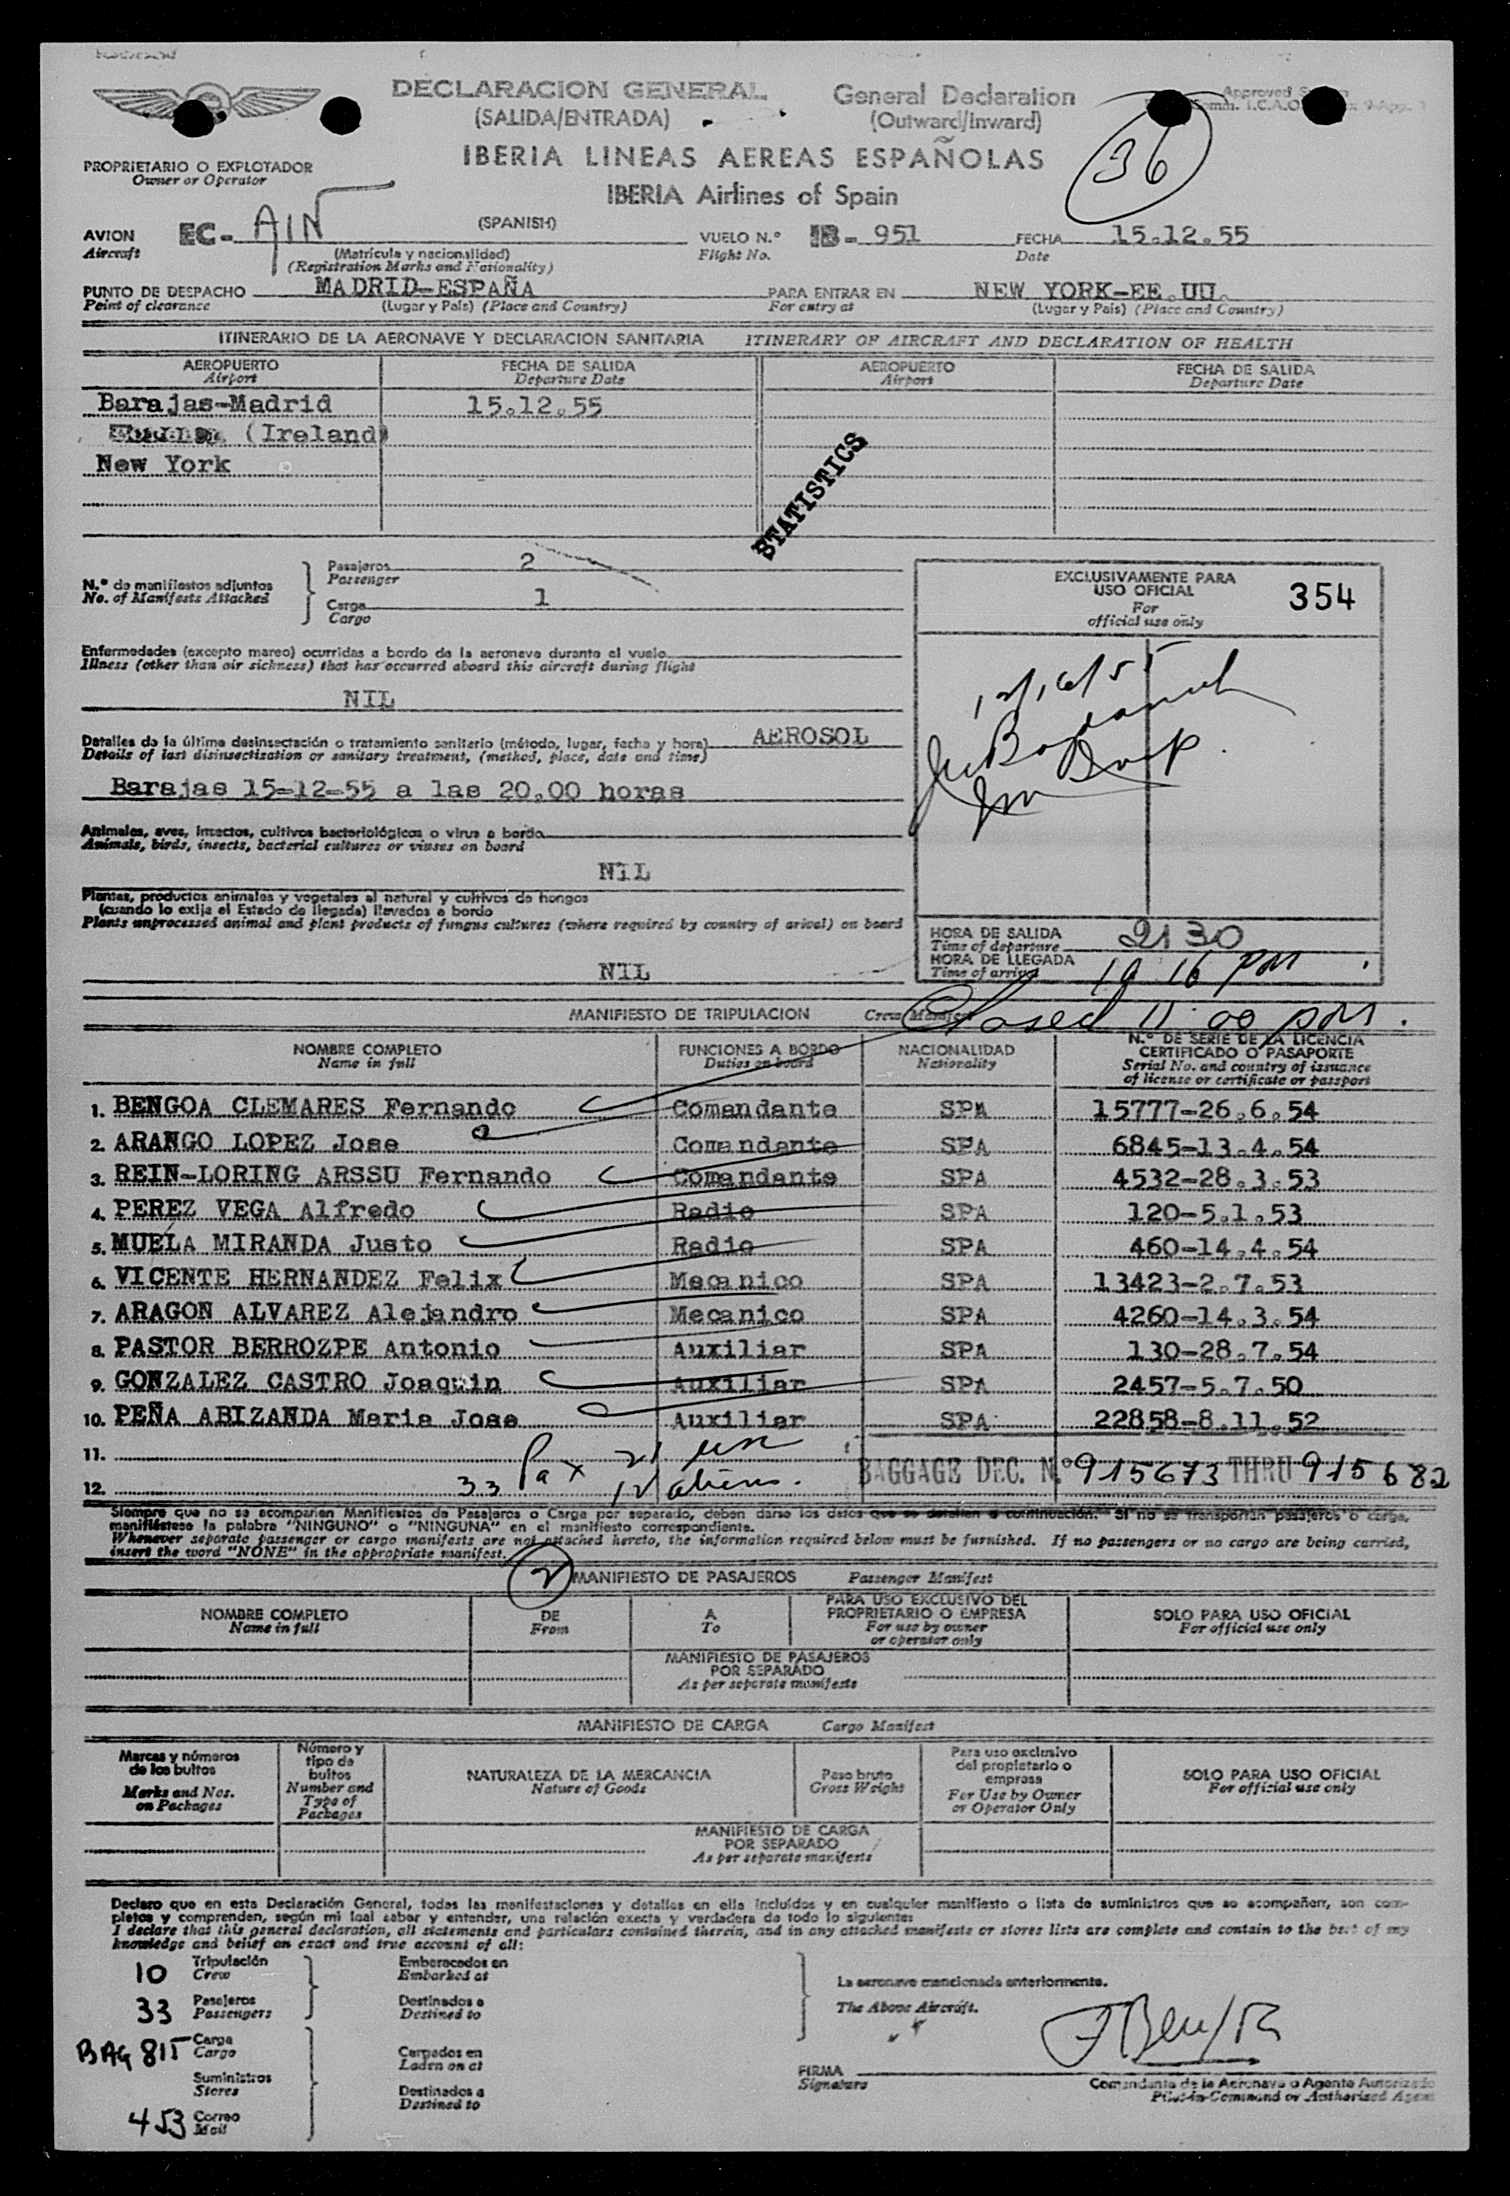 DECLARACION GENERAL
(SALIDA/ENTRADA)
General Declaration
(Outward/Inward)
Approved
36
IBERIA LINEAS AEREAS ESPAÑOLAS
IBERIA Airlines of Spain
PROPRIETARIO O EXPLOTADOR
Owner or Operator
AVION EC- AIN (SPANISH) VUELO N.° IB- 951 FECHA 15.12.55
Aircraft (Matrícula y nacionalidad) Flight No. Date
(Registration Marks and Nationality)
PUNTO DE DESPACHO MADRID-ESPAÑA PARA ENTRAR EN NEW YORK-EE.UU.
Point of clearance (Lugar y País) (Place and Country) For entry at (Lugar y País) (Place and Country)
ITINERARIO DE LA AERONAVE Y DECLARACION SANITARIA ITINERARY OF AIRCRAFT AND DECLARATION OF HEALTH
AEROPUERTO FECHA DE SALIDA AEROPUERTO FECHA DE SALIDA
Airport Departure Date Airport Departure Date
Barajas-Madrid 15.12.55
(Ireland)
New York
STATISTICS
N.° de manifiestos adjuntos
No. of Manifests Attached
Pasajeros 2
Passenger
Carga 1
Cargo
EXCLUSIVAMENTE PARA
USO OFICIAL
For
official use only
354
Enfermedades (excepto mareo) ocurridas a bordo de la aeronave durante el vuelo
Illness (other than air sickness) that has occurred aboard this aircraft during flight
NIL
12/16/55
Detalles de la última desinsectación o tratamiento sanitario (método, lugar, fecha y hora) AEROSOL
Details of last disinsectization or sanitary treatment, (method, place, date and time)
Barajas 15-12-55 a las 20,00 horas
Animales, aves, insectos, cultivos bacteriológicos o virus a bordo
Animals, birds, insects, bacterial cultures or viuses on board
NIL
Plantas, productos animales y vegetales al natural y cultivos de hongos
(cuando lo exija el Estado de llegada) llevados a bordo
Plants unprocessed animal and plant products of fungus cultures (where required by country of arival) on board
NIL
HORA DE SALIDA 2130
Time of departure
HORA DE LLEGADA
Time of arrival 10 16 pm
Closed 11:00 pm.
MANIFIESTO DE TRIPULACION Crew Manifest
NOMBRE COMPLETO FUNCIONES A BORDO NACIONALIDAD N.° DE SERIE DE LA LICENCIA
CERTIFICADO O PASAPORTE
Name in full Duties on board Nationality Serial No. and country of issuance
of license or certificate or passport
1. BENGOA CLEMARES Fernando Comandante SPA 15777-26.6.54
2. ARANGO LOPEZ Jose Comandante SPA 6845-13.4.54
3. REIN-LORING ARSSU Fernando Comandante SPA 4532-28.3.53
4. PEREZ VEGA Alfredo Radio SPA 120-5.1.53
5. MUELA MIRANDA Justo Radio SPA 460-14.4.54
6. VICENTE HERNANDEZ Felix Mecanico SPA 13423-2.7.53
7. ARAGON ALVAREZ Alejandro Mecanico SPA 4260-14.3.54
8. PASTOR BERROZPE Antonio Auxiliar SPA 130-28.7.54
9. GONZALEZ CASTRO Joaquin Auxiliar SPA 2457-5.7.50
10. PEÑA ARIZANDA Maria Jose Auxiliar SPA 22858-8.11.52
11.
12. 33 Pax 21 usc
12 aliens.
BAGGAGE DEC. N.° 915673 THRU 915682
Siempre que no se acompañen Manifiestos de Pasajeros o Carga por separado, deben darse los datos que se detallan a continuación. Si no se transportan pasajeros o carga,
manifiéstese la palabra "NINGUNO" o "NINGUNA" en el manifiesto correspondiente.
Whenever separate passenger or cargo manifests are not attached hereto, the information required below must be furnished. If no passengers or no cargo are being carried,
insert the word "NONE" in the appropriate manifest.
2
MANIFIESTO DE PASAJEROS Passenger Manifest
NOMBRE COMPLETO DE A PARA USO EXCLUSIVO DEL
PROPRIETARIO O EMPRESA SOLO PARA USO OFICIAL
Name in full From To For use by owner
or operator only For official use only
MANIFIESTO DE PASAJEROS
POR SEPARADO
As per separate manifests
MANIFIESTO DE CARGA Cargo Manifest
Marcas y números
de los bultos
Marks and Nos.
on Packages
Número y
tipo de
bultos
Number and
Type of
Packages
NATURALEZA DE LA MERCANCIA
Nature of Goods
Peso bruto
Gross Weight
Para uso exclusivo
del propietario o
empresa
For Use by Owner
or Operator Only
SOLO PARA USO OFICIAL
For official use only
MANIFIESTO DE CARGA
POR SEPARADO
As per separate manifests
Declaro que en esta Declaración General, todas las manifestaciones y detalles en ella incluídos y en cualquier manifiesto o lista de suministros que se acompañen, son com-
pletos y comprenden, según mi leal saber y entender, una relación exacta y verdadera de todo lo siguiente:
I declare that this general declaration, all statements and particulars contained therein, and in any attached manifests or stores lists are complete and contain to the best of my
knowledge and belief an exact and true account of all:
10 Tripulación
Crew
33 Pasajeros
Passengers
BAG 815 Carga
Cargo
Suministros
Stores
453 Correo
Mail
Embaracados en
Embarked at
Destinados a
Destined to
Cargados en
Laden on at
Destinados a
Destined to
La aeronave mencionada anteriormente.
The Above Aircraft.
FIRMA
Signature
Comandante de la Aeronave o Agente Autorizado
Pilot-in-Command or Authorized Agent